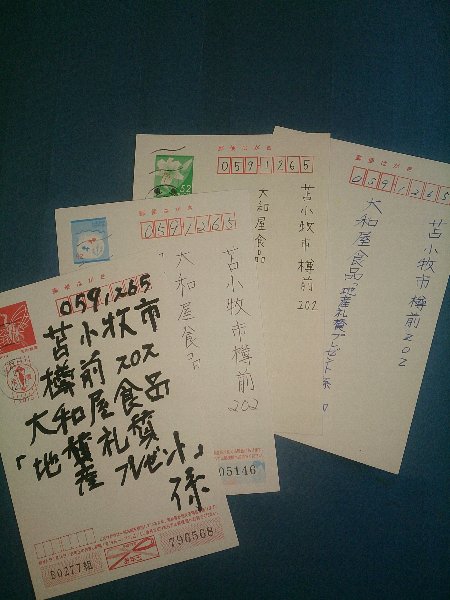 郵便はがき
0591265
苫小牧市
樽前202
大和屋食品
「地産礼賛
プレゼント」
係
B0277組
796568
郵便はがき
0591265
苫小牧市樽前
202
大和屋食品
05146
郵便はがき
52
0591265
苫小牧市樽前
202
大和屋食品
郵便はがき
0591265
苫小牧市樽前202
大和屋食品「地産礼賛プレゼント係」